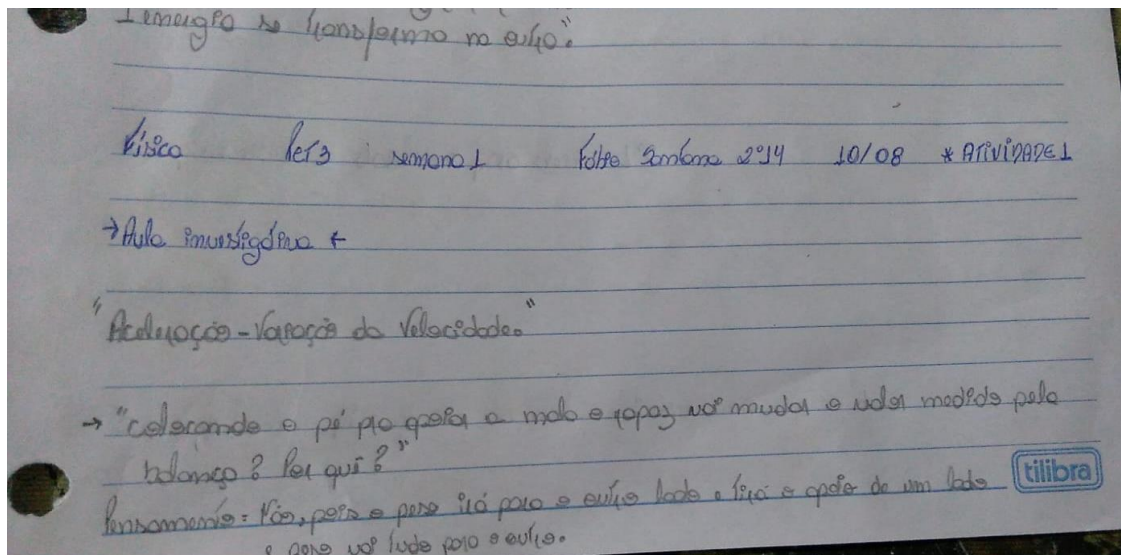 se transforma no outro."
Física PET3 semana 1 Santana 2º14 10/08 * ATIVIDADE 1
→ Aula investigativa ←
"Aceleração - Variação da Velocidade."
→ "colocando o pé pro apoiar a mala o rapaz vai mudar o valor medido pela
balança? Por quê?"
tilibra
Pensamento: Não, pois o peso irá para o outro lado e o apoio de um lado
o peso vai tudo para o outro.